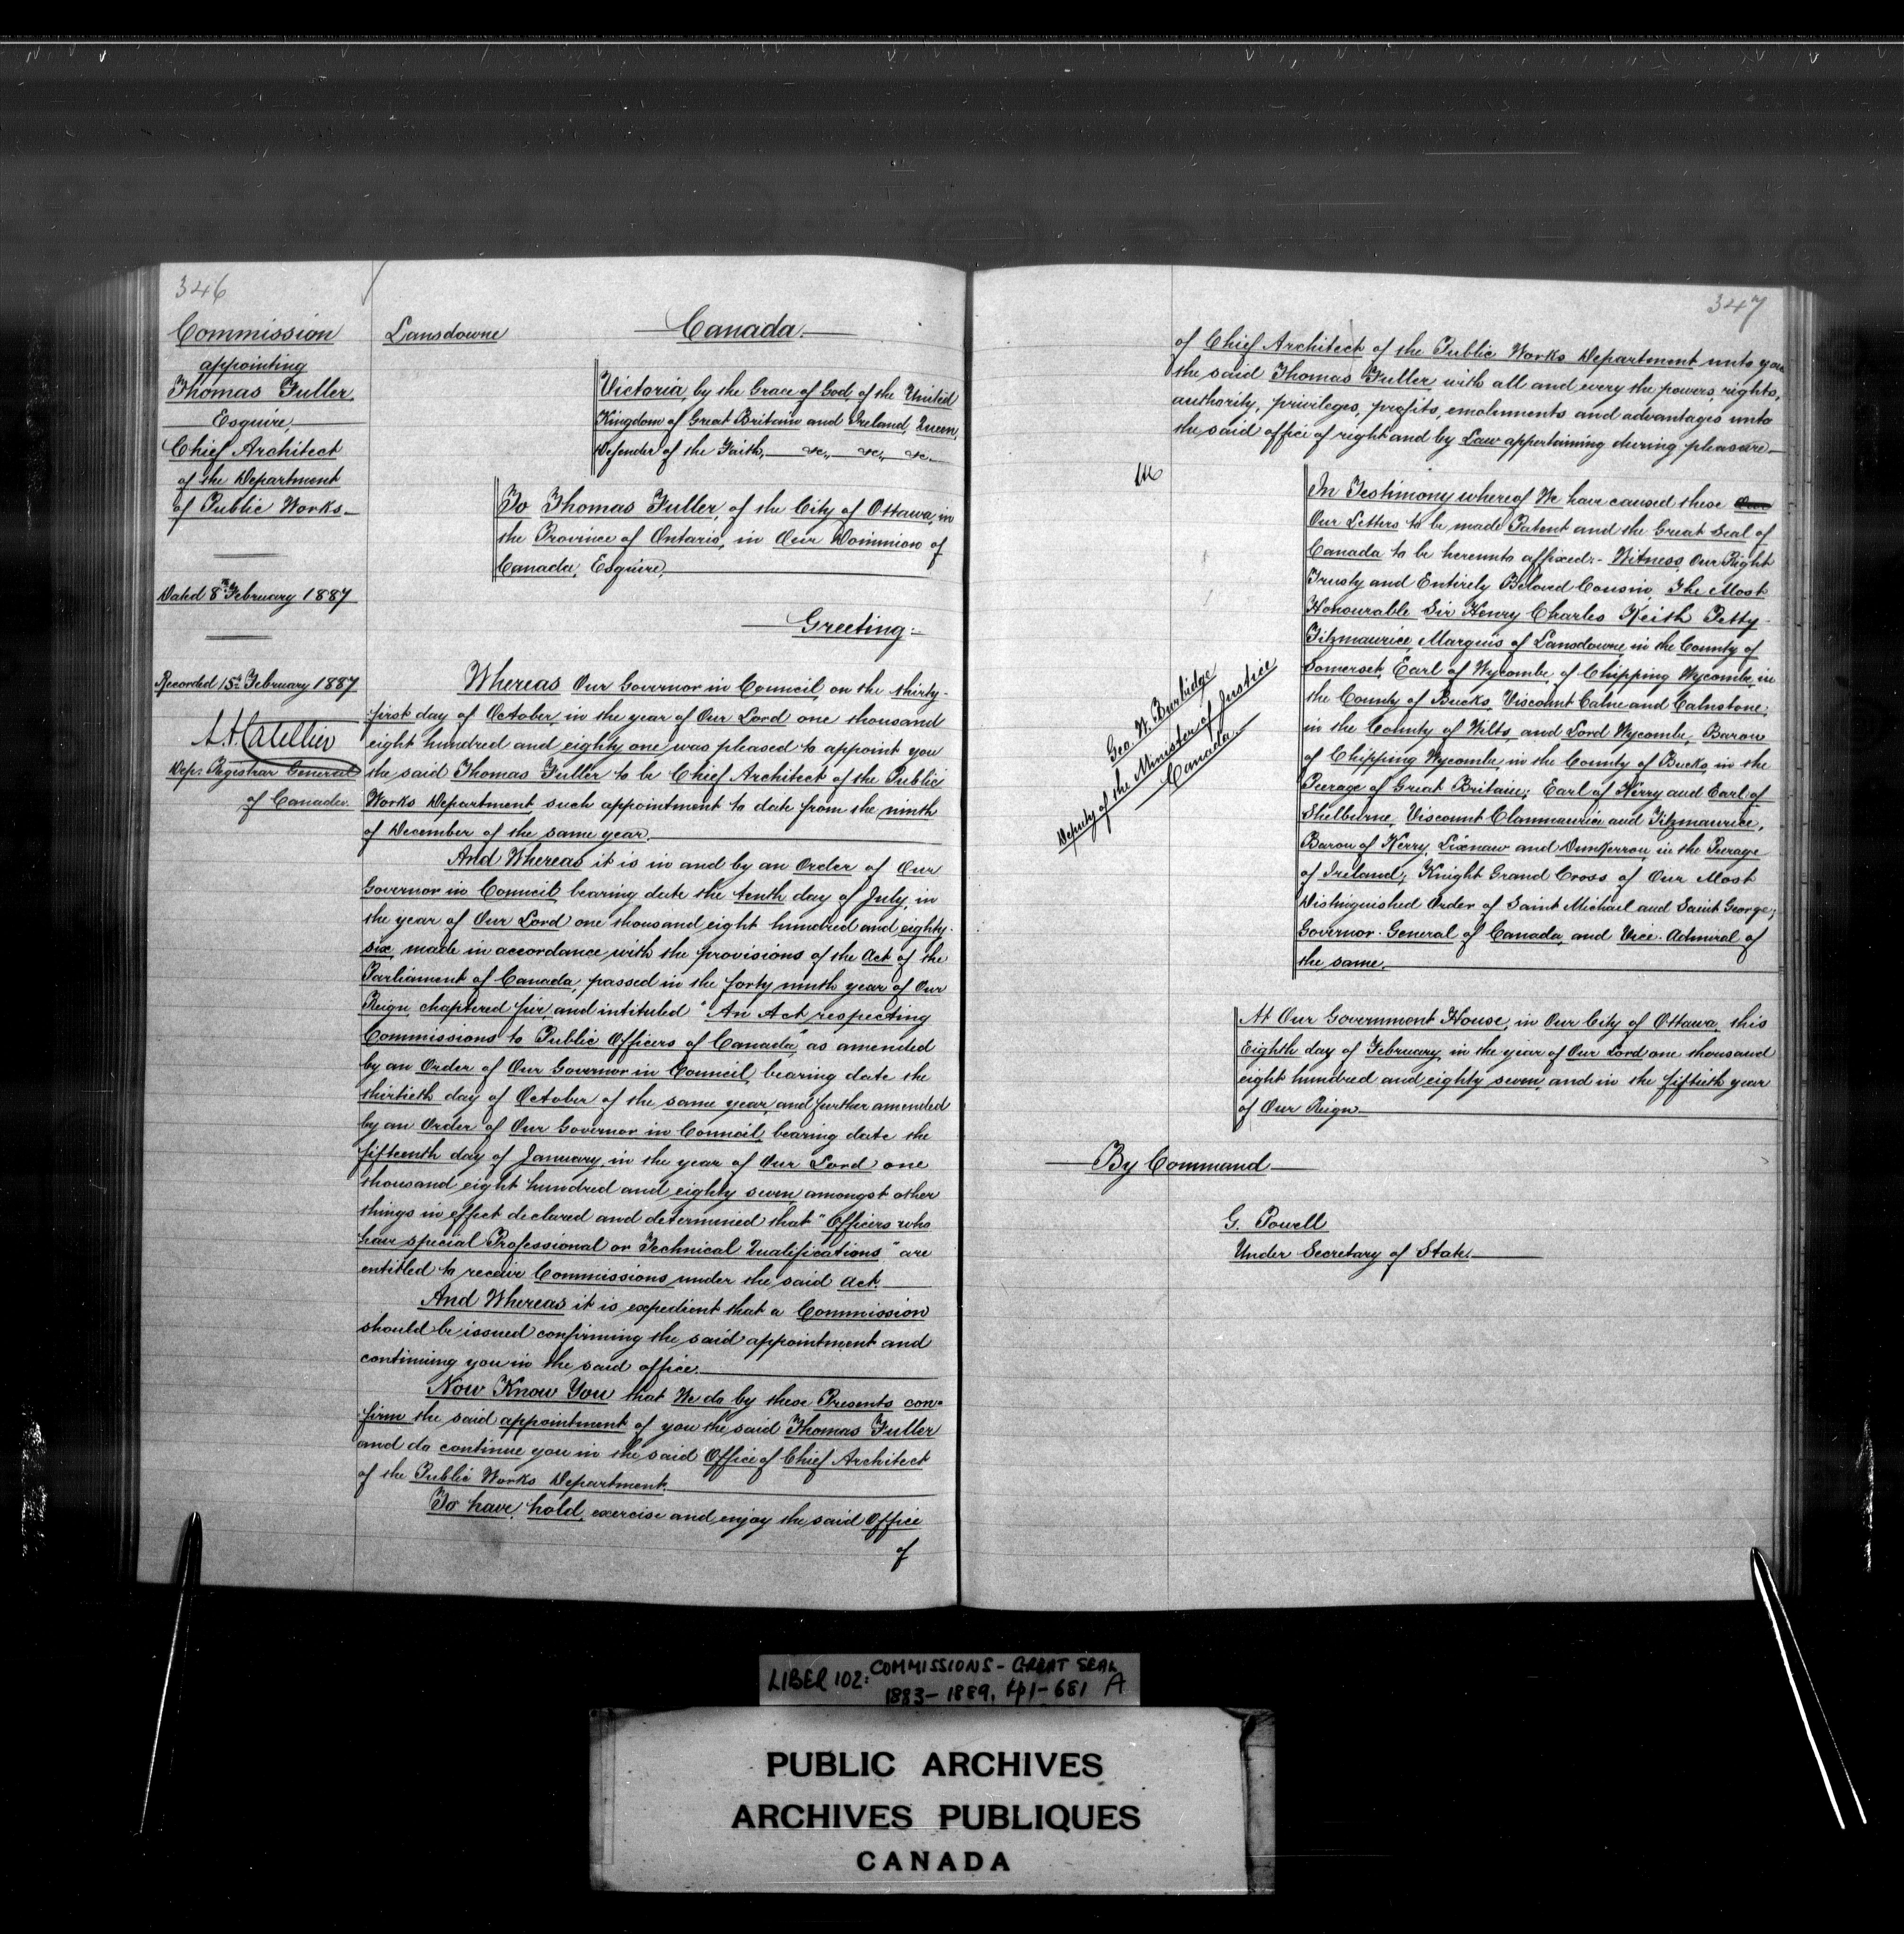 346
Commission
appointing
Thomas Fuller,
Esquire,
Chief Architect
of the Department
of Public Works.
Dated 8th February 1887
Recorded 15th February 1887
Dep. Registrar General
of Canada.
Lansdowne
Canada.
Victoria, by the Grace of God, of the United
Kingdom of Great Britain and Ireland, Queen,
Defender of the Faith, &c., &c., &c.
To Thomas Fuller, of the City of Ottawa, in
the Province of Ontario, in Our Dominion of
Canada, Esquire,
Greeting:-
Whereas Our Governor in Council on the thirty-
first day of October, in the year of Our Lord one thousand
eight hundred and eighty one was pleased to appoint you
the said Thomas Fuller to be Chief Architect of the Public
Works Department, such appointment to date from the ninth
of December of the same year.
And Whereas it is in and by an Order of Our
Governor in Council, bearing date the tenth day of July, in
the year of Our Lord one thousand eight hundred and eighty-
six, made in accordance with the provisions of the Act of the
Parliament of Canada, passed in the forty ninth year of Our
Reign, chaptered five, and intituled "An Act respecting
Commissions to Public Officers of Canada", as amended
by an Order of Our Governor in Council, bearing date the
thirtieth day of October of the same year, and further amended
by an Order of Our Governor in Council, bearing date the
fifteenth day of January, in the year of Our Lord one
thousand eight hundred and eighty seven, amongst other
things in effect declared and determined that "Officers who
have special Professional or Technical Qualifications," are
entitled to receive Commissions under the said Act.
And Whereas it is expedient that a Commission
should be issued confirming the said appointment and
continuing you in the said office.
Now Know You that We do by these Presents con-
firm the said appointment of you the said Thomas Fuller
and do continue you in the said Office of Chief Architect
of the Public Works Department.
To have, hold, exercise and enjoy the said Office
of
347
of Chief Architect of the Public Works Department unto you
the said Thomas Fuller with all and every the powers, rights,
authority, privileges, profits, emoluments and advantages unto
the said office of right and by Law appertaining during pleasure.
In Testimony whereof We have caused these Our
Our Letters to be made Patent and the Great Seal of
Canada to be hereunto affixed:- Witness, Our Right
Trusty and Entirely Beloved Cousin, The Most
Honourable Sir Henry Charles Keith Petty-
Fitzmaurice, Marquis of Lansdowne, in the County of
Somerset, Earl of Wycombe, of Chipping Wycombe, in
the County of Bucks, Viscount Calne and Calnstone,
in the County of Wilts, and Lord Wycombe, Baron
of Chipping Wycombe in the County of Bucks, in the
Peerage of Great Britain; Earl of Kerry and Earl of
Shelburne, Viscount Clanmaurice and Fitzmaurice,
Baron of Kerry, Lixnaw and Dunkerron, in the Peerage
of Ireland; Knight Grand Cross of Our Most
Distinguished Order of Saint Michael and Saint George;
Governor-General of Canada, and Vice-Admiral of
the same.
Geo. W. Burbidge
Deputy of the Minister of Justice
Canada.
At Our Government House, in Our City of Ottawa, this
Eighth day of February, in the year of Our Lord one thousand
eight hundred and eighty seven, and in the fiftieth year
of Our Reign.
By Command
G. Powell
Under Secretary of State.
LIBER 102: COMMISSIONS - GREAT SEAL
1883-1889, pp1-681 A
PUBLIC ARCHIVES
ARCHIVES PUBLIQUES
CANADA